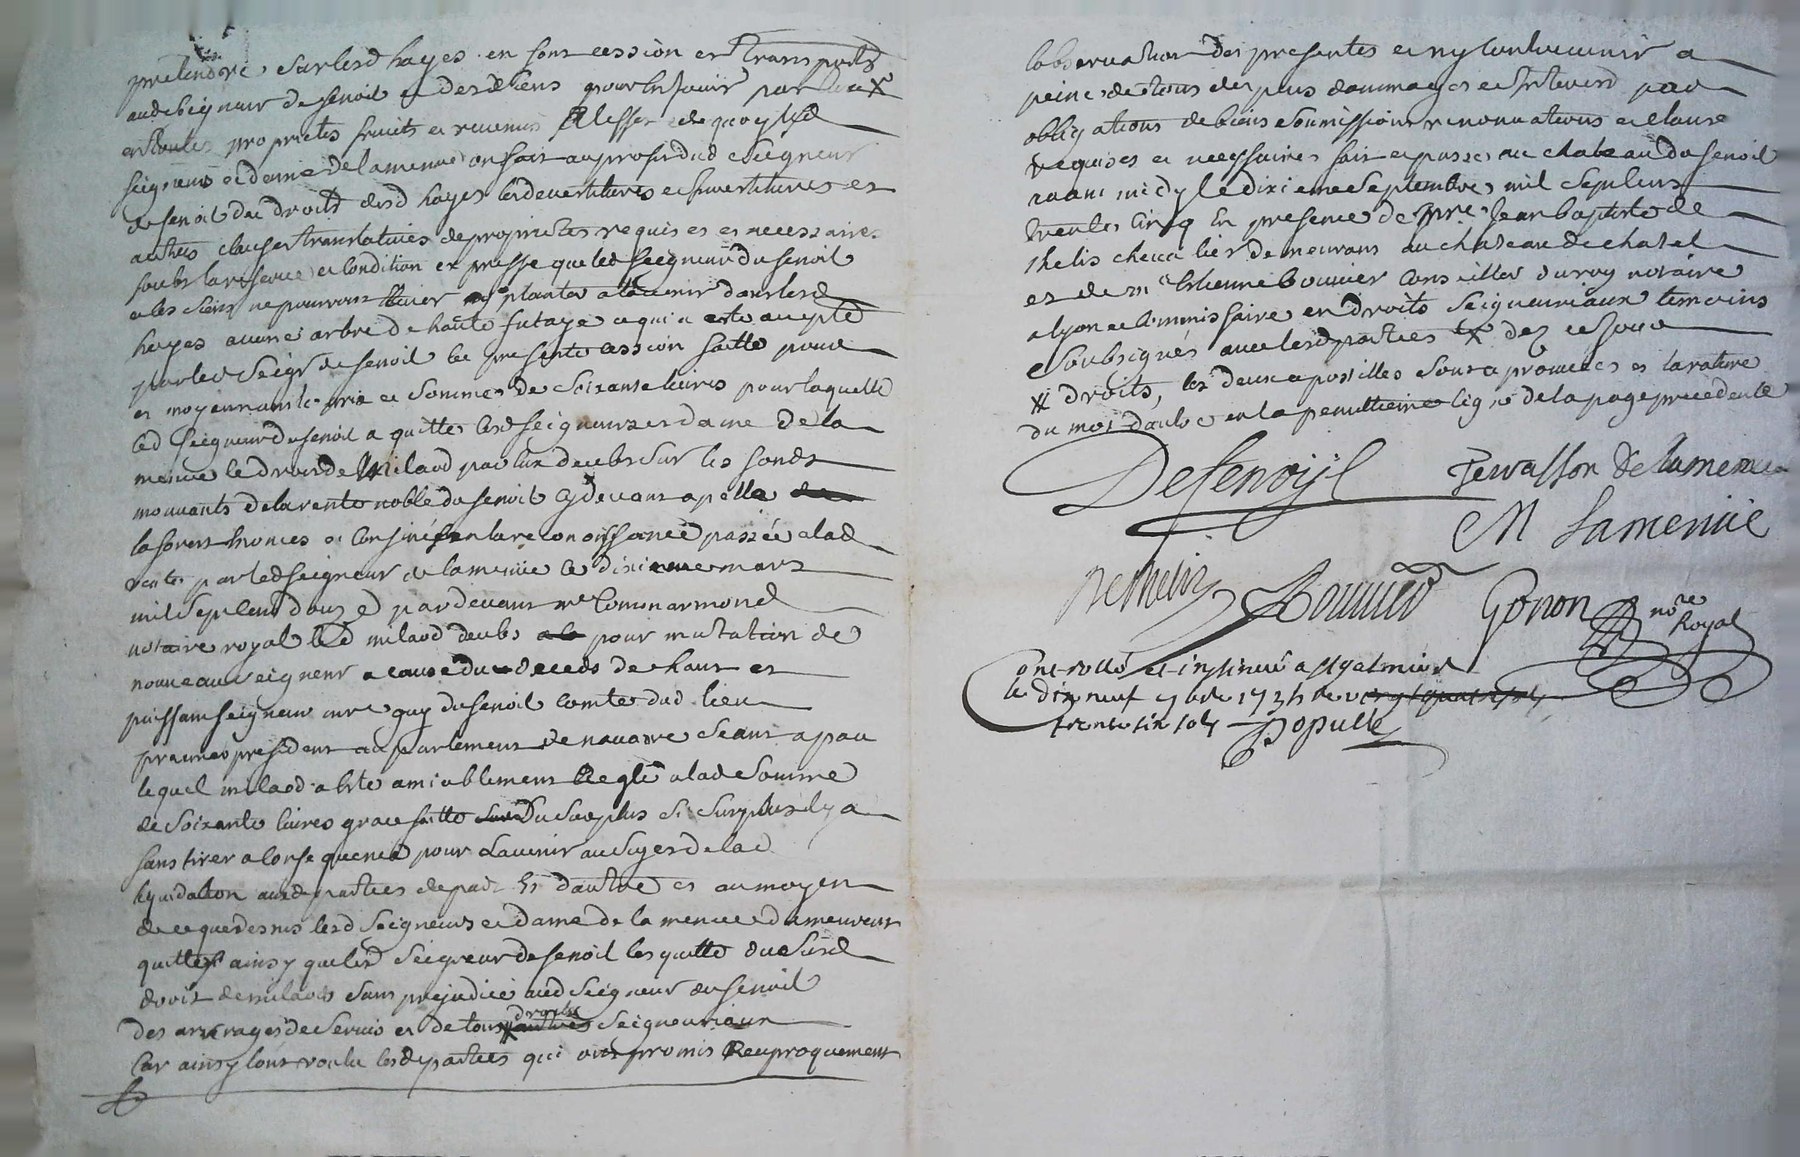 pretendre surlesd hayes en font cession et transports
audseigneur de senoil et des siens pour en jouir par eux
en toutes proprietes fruits et revenus a l'effet de quoy lesd
seigneur et dame de la menue on fait au profit dud seigneur
du senoil des droits desd hayes les devestitures et investitures et
autres clauses translatives de proprietes requises et necessaires
soubs la reserve et condition expresse que led seigneur du senoil
et les siens ne pourront planter a l'avenir dans lesd
hayes aucune arbre de haute futaye ce qui a este accepté
par led seigr de senoil la presente cession faitte pour
et moyennant le prix et somme de soixante livres pour laquelle
led seigneur du senoil a quitte lesd seigneurs et dame de la
menue le droit de milaod par lux deubs sur les fonds
mouvants de la rente noble du senoil cy devant apella
la forest et consinés en la reconoissance passée a lad
rente par led seigneur de la menue le dixieme mars
mil sept cent douze par devant me armond
notaire royal led milaod deubs pour mutation de
nouveau seigneur a cause du deceds de haut et
puissant seigneur mre guy du senoil comte dud lieu
premier president au parlement de navarre seant a pau
lequel milaod a este amiablement reglé a lad somme
de soixante livres grace faitte du surplus si surplus il y a
sans tirer a consequence pour l'avenir au sujet de lad
liquidation auxd parties de part et d'autre et au moyen
de ce que dessus lesd seigneurs et dame de la menue demeurent
quittes ainsy que led seigneur de senoil les quitte du susd
droit de milaods sans prejudice aud seigneur du senoil
des arrerages de servis et de tous autres droits seigneuriaux
car ainsy l'ont voulu lesd parties qui ont promis reciproquement
l'observation des presentes et n'y contrevenir a
peine de tous despens dommages et interests par
obligations de biens soumissions renonciations et clause
requises et necessaires fait et passé au chateau du senoil
avant midy le dixieme septembre mil sept cent
trente cinq en presence de Mre Jean baptiste de
thelis chevalier de au chateau de chatel
et de me Etienne bouvier conseiller du roy notaire
a lyon et commissaire en droits seigneuriaux temoins
soubsignés avec lesd parties X dez ce jour
X droits, les deux apostilles sont aprouvées et la rature
du mot d'aulx en la penultieme ligne de la page precedente
Desenoÿl Gervasson de lamenue
M Lamenüe
Dethelis Bouvier Gonon nore Royal
Controllé et insinué a st galmier
le dix neuf 7bre 1735 de vingt quatre sols
trente six sols Populle